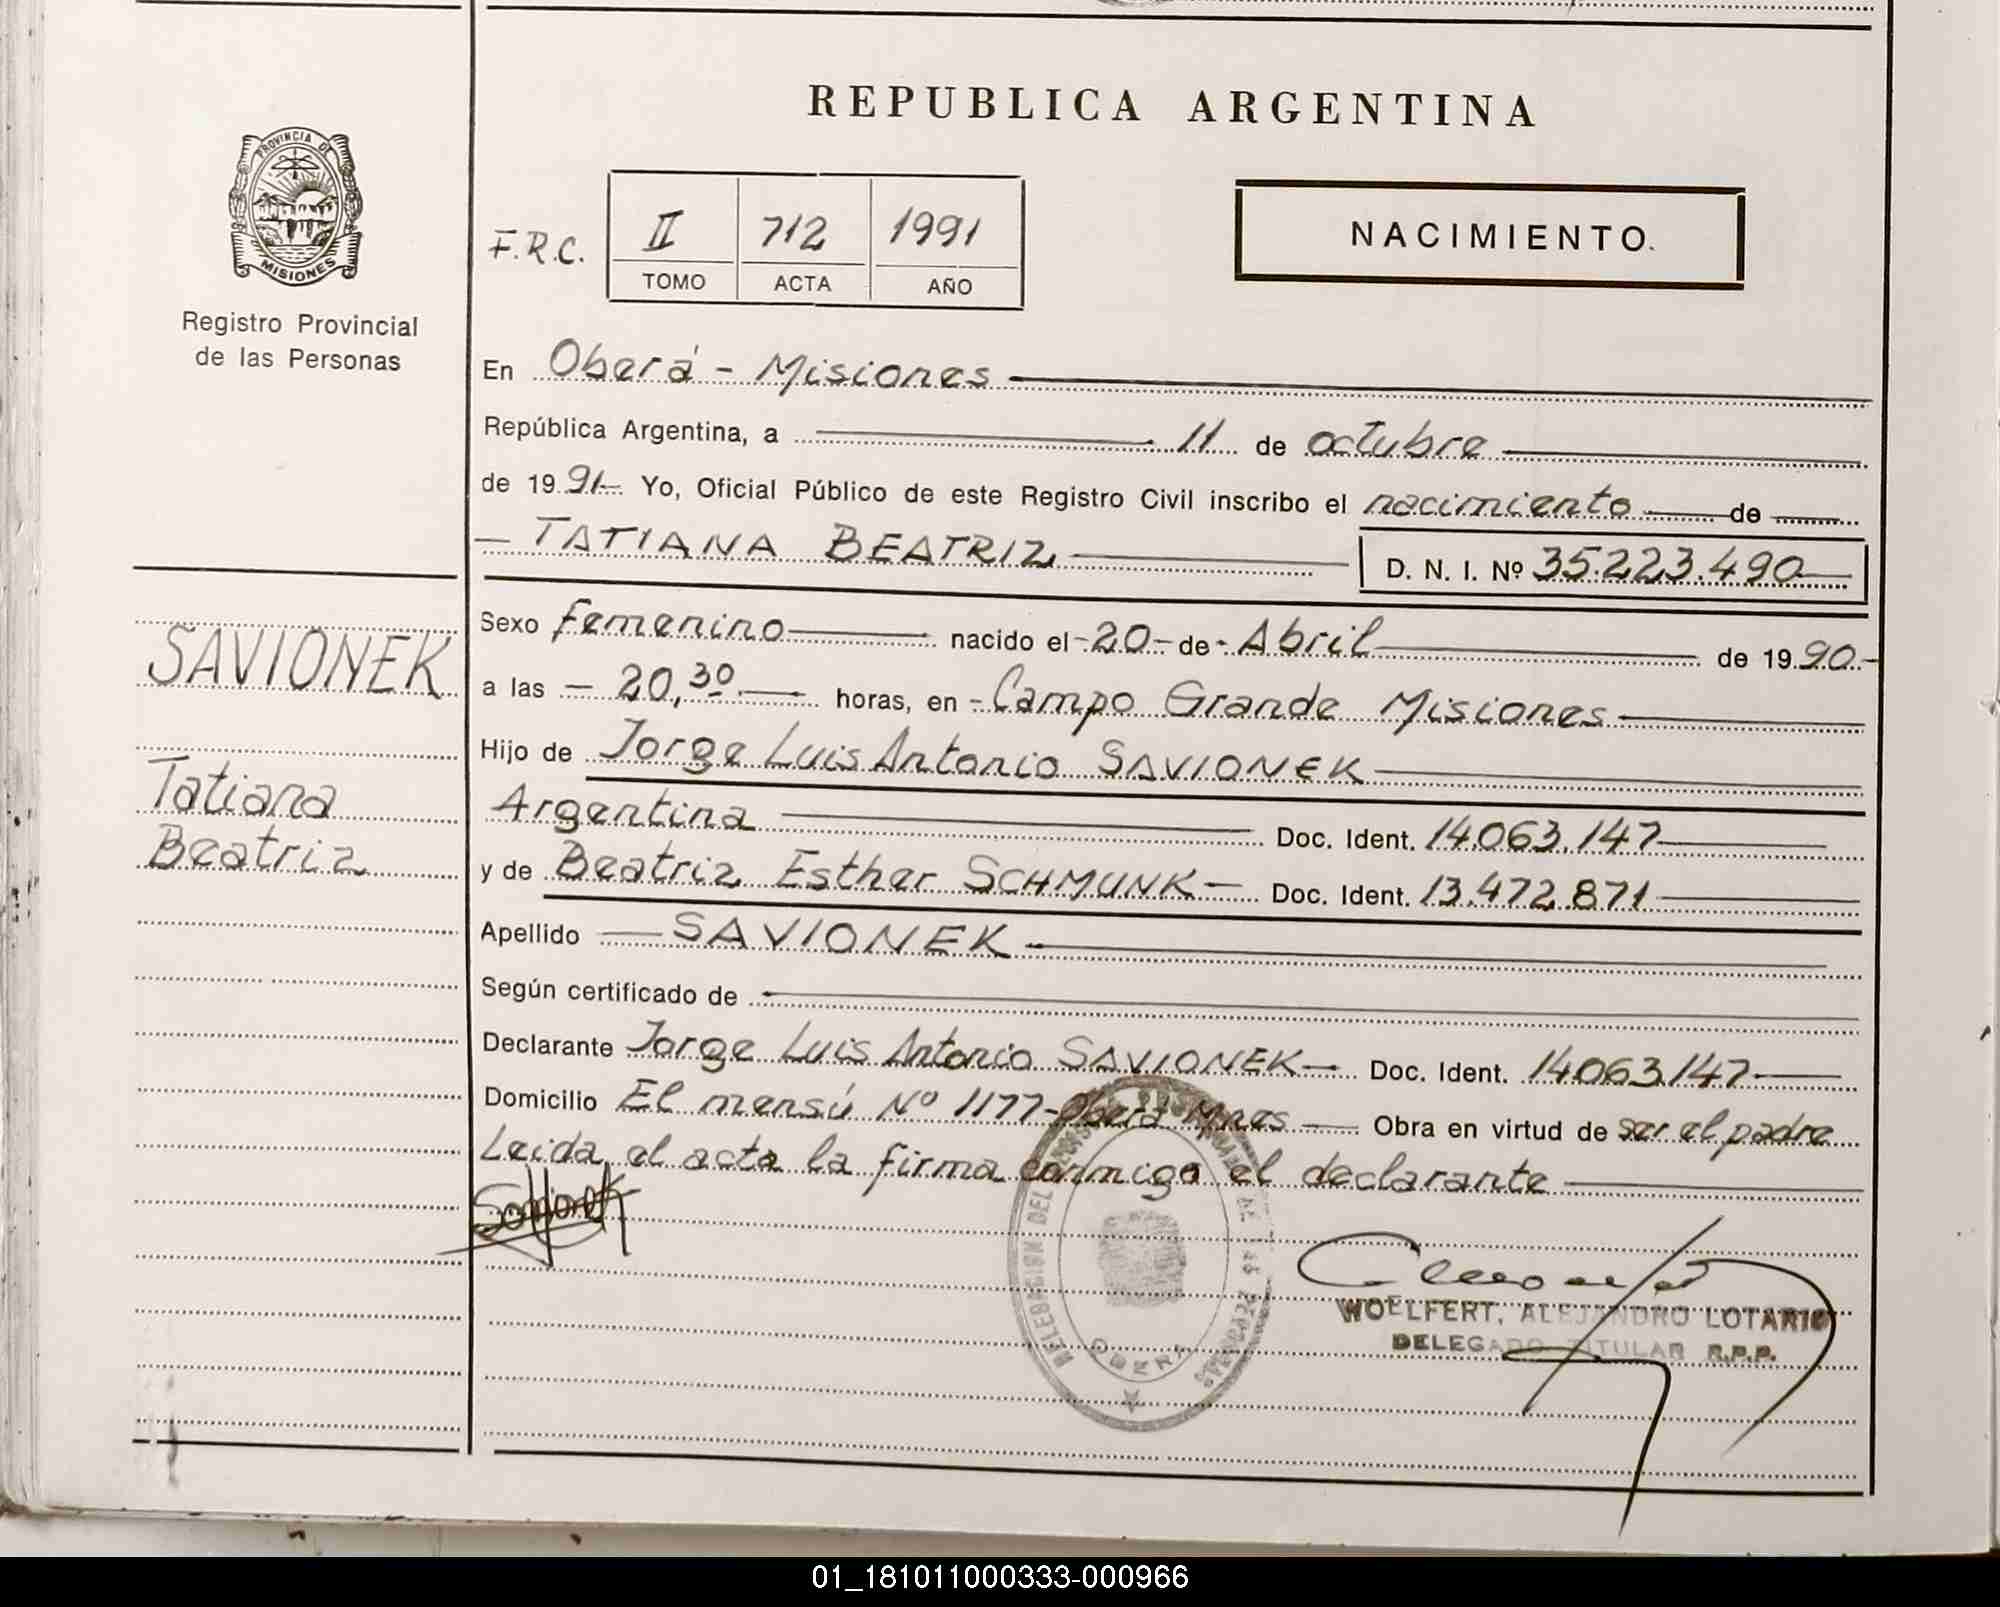 REPUBLICA ARGENTINA
PROVINCIA DE
MISIONES
Registro Provincial
de las Personas
F.R.C. II 712 1991
TOMO ACTA AÑO
NACIMIENTO.
En Oberá - Misiones
República Argentina, a 11 de octubre
de 1991 Yo, Oficial Público de este Registro Civil inscribo el nacimiento de
TATIANA BEATRIZ D. N. I. Nº 35.223.490
SAVIONEK
Tatiana
Beatriz
Sexo Femenino nacido el 20 de Abril de 1990
a las 20,30 horas, en Campo Grande Misiones
Hijo de Jorge Luis Antonio SAVIONEK
Argentina Doc. Ident. 14.063.147
y de Beatriz Esther SCHMUNK Doc. Ident. 13.472.871
Apellido SAVIONEK
Según certificado de
Declarante Jorge Luis Antonio SAVIONEK Doc. Ident. 14.063.147
Domicilio El mensú Nº 1177 - Oberá Mnes Obra en virtud de ser el padre
Leida el acta la firma conmigo el declarante
WOELFERT, ALEJANDRO LOTARIO
DELEGADO TITULAR R.P.P.
01_181011000333-000966